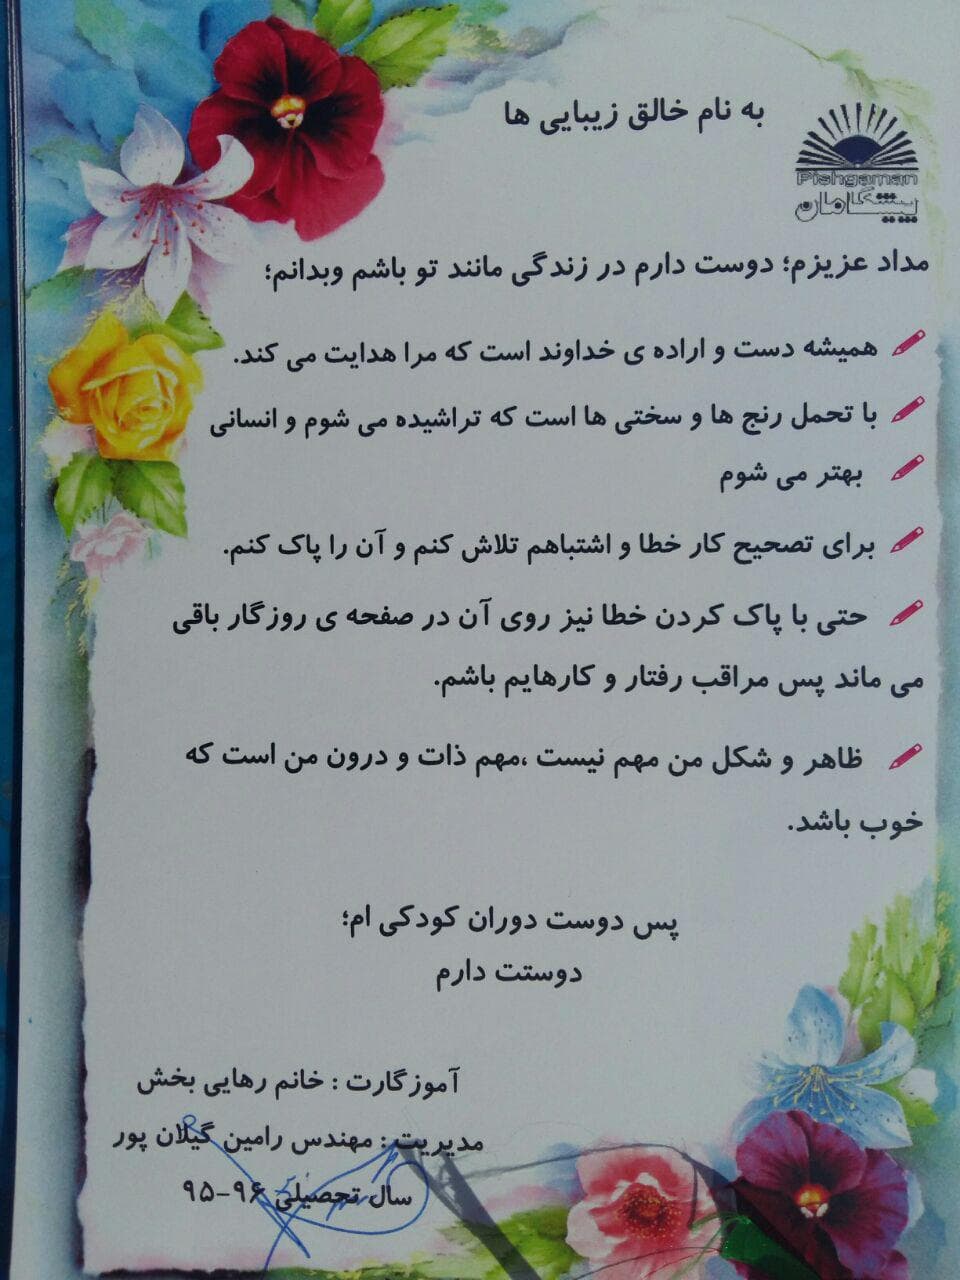 به نام خالق زیبایی ها
Pishgaman
پیشگامان
مداد عزیزم؛ دوست دارم در زندگی مانند تو باشم وبدانم؛
همیشه دست و اراده ی خداوند است که مرا هدایت می کند.
با تحمل رنج ها و سختی ها است که تراشیده می شوم و انسانی
بهتر می شوم
برای تصحیح کار خطا و اشتباهم تلاش کنم و آن را پاک کنم.
حتی با پاک کردن خطا نیز روی آن در صفحه ی روزگار باقی
می ماند پس مراقب رفتار و کارهایم باشم.
ظاهر و شکل من مهم نیست ،مهم ذات و درون من است که
خوب باشد.
پس دوست دوران کودکی ام؛
دوستت دارم
آموزگارت : خانم رهایی بخش
مدیریت : مهندس رامین گیلان پور
سال تحصیلی ۹۶-۹۵